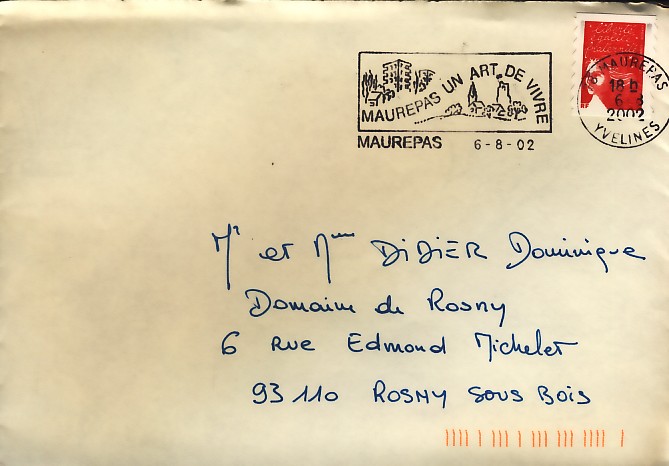 liberté
égalité
fraternité
MAUREPAS UN ART DE VIVRE
MAUREPAS 6-8-02
MAUREPAS
18 h
6 8
2002
YVELINES
Mr et Mme DIDIER Dominique
Domaine de Rosny
6 rue Edmond Michelet
93110 ROSNY SOUS BOIS